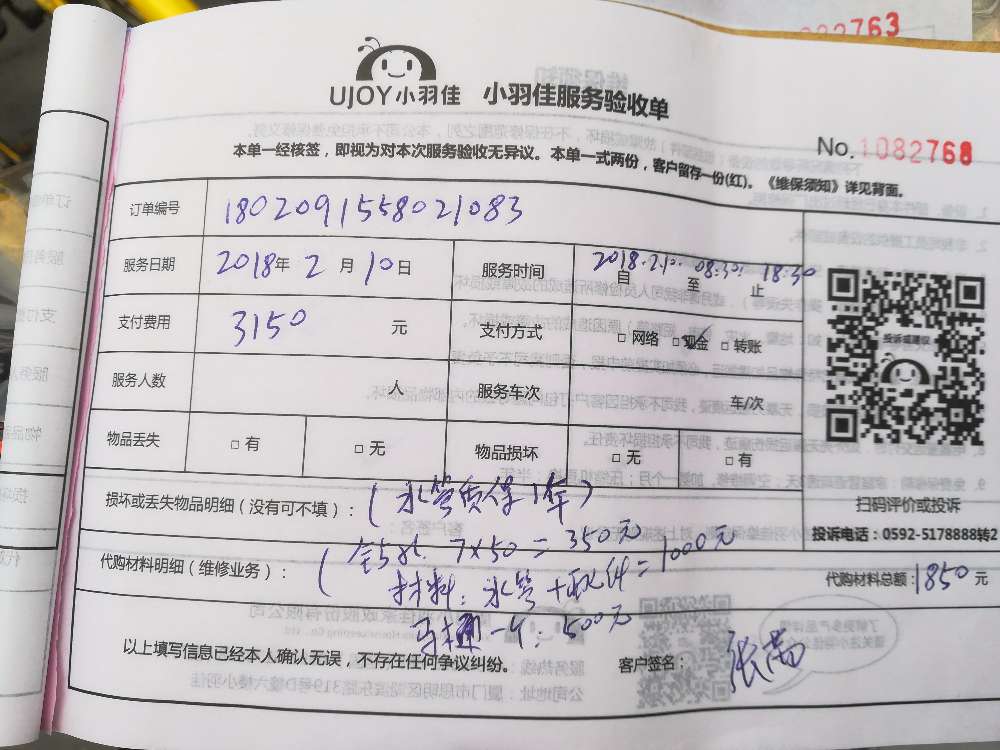 UJOY小羽佳 小羽佳服务验收单
No. 1082768
本单一经核签，即视为对本次服务验收无异议。本单一式两份，客户留存一份(红)。《维保须知》详见背面。
订单编号 1802091558021083
服务日期 2018年 2 月 10 日 服务时间 2018.2.10. 08:30 18:30
自 至 止
支付费用 3150 元 支付方式 □ 网络 □ 现金 □ 转账
服务人数 人 服务车次 车/次
物品丢失 □ 有 □ 无 物品损坏 □ 无 □ 有
损坏或丢失物品明细（没有可不填）： （水管质保1年）
代购材料明细（维修业务）： （ 7×50=350元
材料：水管+配件=1000元
马桶一个：500元
代购材料总额：1850元
投诉或建议
扫码评价或投诉
投诉电话：0592-5178888转2
以上填写信息已经本人确认无误，不存在任何争议纠纷。 客户签名：